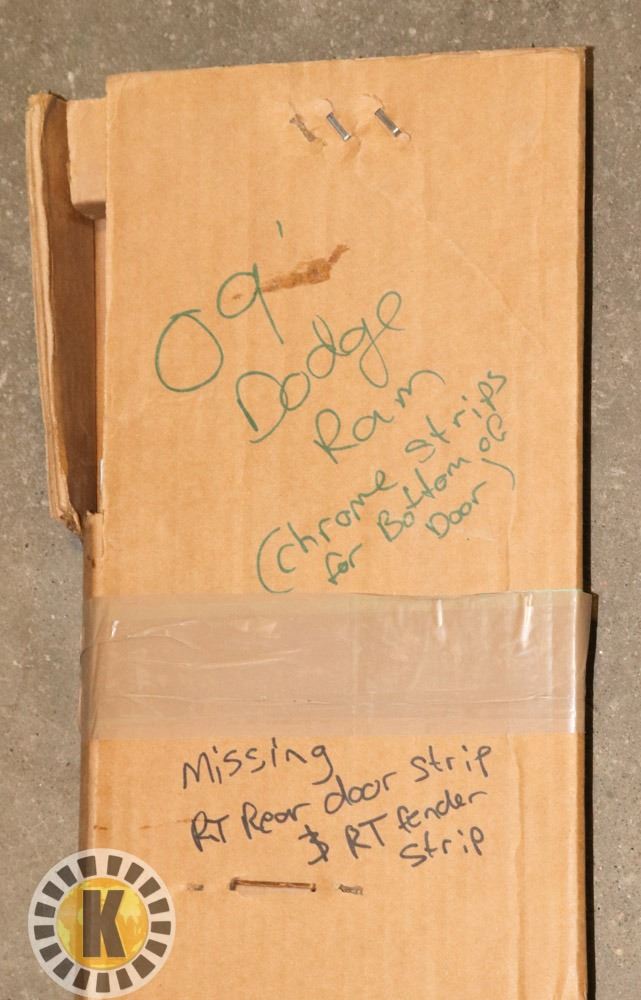 09'
Dodge
Ram
(Chrome Strips
for Bottom of
Door)
Missing
RT Rear door strip
& RT fender
strip
K